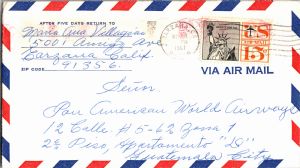 AFTER FIVE DAYS RETURN TO
Maria Ana Villagran
15001 Ave.
Tarzana Calif.
ZIP CODE 91356
TARZANA
1967
15¢
VIA AIR MAIL
Pan American World Airways
12 Calle # 5-62 Zona 1
2º Piso, Apartamento "D"
Guatemala City